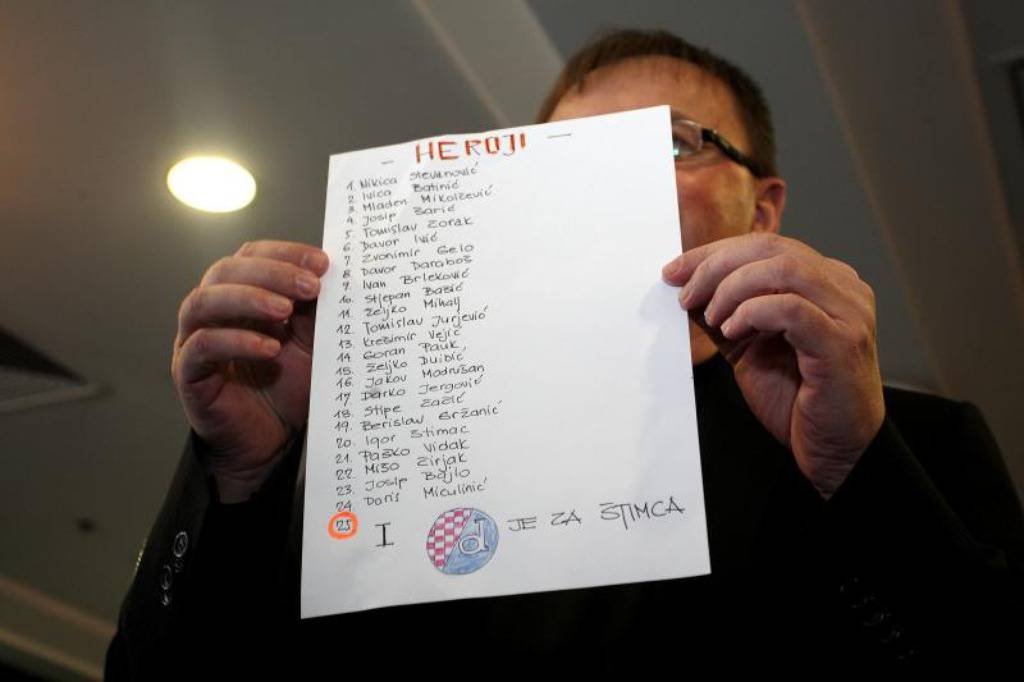 - HEROJI -
1. Nikica Stevanović
2. Ivica Batinić
3. Mladen Mikolčević
4. Josip Barić
5. Tomislav Zorak
6. Davor Ivić
7. Zvonimir Gelo
8. Davor Daraboš
9. Ivan Brleković
10. Stjepan Babić
11. Željko Mihalj
12. Tomislav Jurjević
13. Krešimir Vejić
14. Goran Pauk,
15. Željko Dubić
16. Jakov Modrušan
17. Darko Jergović
18. Stipe
19. Berislav Gržanić
20. Igor Štimac
21. Paško Vidak
22. Mišo Žirjak
23. Josip Bajlo
24. Doris Miculinić
25 I d JE ZA ŠTIMCA